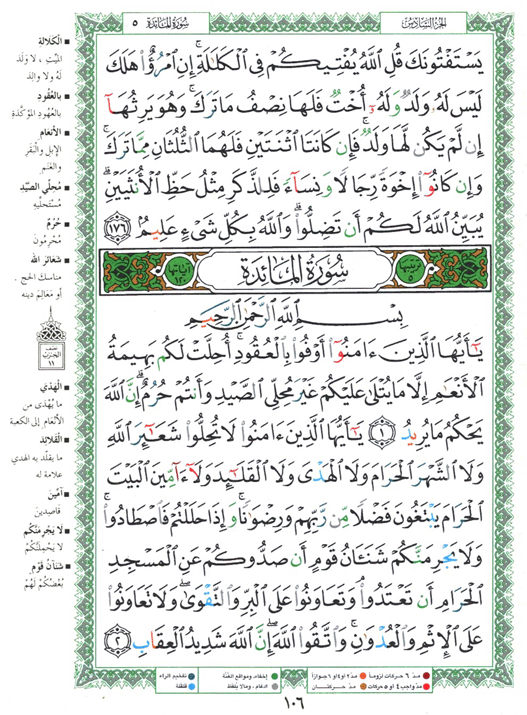 الجزء السادس
سورة المائدة ٥
يَسْتَفْتُونَكَ قُلِ ٱللَّهُ يُفْتِيكُمْ فِى ٱلْكَلَٰلَةِ ۚ إِنِ ٱمْرُؤٌا۟ هَلَكَ
لَيْسَ لَهُۥ وَلَدٌ وَلَهُۥٓ أُخْتٌ فَلَهَا نِصْفُ مَا تَرَكَ ۚ وَهُوَ يَرِثُهَآ
إِن لَّمْ يَكُن لَّهَا وَلَدٌ ۚ فَإِن كَانَتَا ٱثْنَتَيْنِ فَلَهُمَا ٱلثُّلُثَانِ مِمَّا تَرَكَ ۚ
وَإِن كَانُوٓا۟ إِخْوَةً رِّجَالًا وَنِسَآءً فَلِلذَّكَرِ مِثْلُ حَظِّ ٱلْأُنثَيَيْنِ ۗ
يُبَيِّنُ ٱللَّهُ لَكُمْ أَن تَضِلُّوا۟ ۗ وَٱللَّهُ بِكُلِّ شَىْءٍ عَلِيمٌۢ ١٧٦
ترتيبها ٥ سُورَةُ المَائدَةِ آياتها ١٢٠
بِسْمِ ٱللَّهِ ٱلرَّحْمَٰنِ ٱلرَّحِيمِ
يَٰٓأَيُّهَا ٱلَّذِينَ ءَامَنُوٓا۟ أَوْفُوا۟ بِٱلْعُقُودِ ۚ أُحِلَّتْ لَكُم بَهِيمَةُ
ٱلْأَنْعَٰمِ إِلَّا مَا يُتْلَىٰ عَلَيْكُمْ غَيْرَ مُحِلِّى ٱلصَّيْدِ وَأَنتُمْ حُرُمٌ ۗ إِنَّ ٱللَّهَ
يَحْكُمُ مَا يُرِيدُ ١ يَٰٓأَيُّهَا ٱلَّذِينَ ءَامَنُوا۟ لَا تُحِلُّوا۟ شَعَٰٓئِرَ ٱللَّهِ
وَلَا ٱلشَّهْرَ ٱلْحَرَامَ وَلَا ٱلْهَدْىَ وَلَا ٱلْقَلَٰٓئِدَ وَلَآ ءَآمِّينَ ٱلْبَيْتَ
ٱلْحَرَامَ يَبْتَغُونَ فَضْلًا مِّن رَّبِّهِمْ وَرِضْوَٰنًا ۚ وَإِذَا حَلَلْتُمْ فَٱصْطَادُوا۟ ۚ
وَلَا يَجْرِمَنَّكُمْ شَنَـَٔانُ قَوْمٍ أَن صَدُّوكُمْ عَنِ ٱلْمَسْجِدِ
ٱلْحَرَامِ أَن تَعْتَدُوا۟ ۘ وَتَعَاوَنُوا۟ عَلَى ٱلْبِرِّ وَٱلتَّقْوَىٰ ۖ وَلَا تَعَاوَنُوا۟
عَلَى ٱلْإِثْمِ وَٱلْعُدْوَٰنِ ۚ وَٱتَّقُوا۟ ٱللَّهَ ۖ إِنَّ ٱللَّهَ شَدِيدُ ٱلْعِقَابِ ٢
الكلالة
الميّت ، لا وَلَدَ
لَهُ ولا والِدَ
بالعُقود
بالعُهودِ المؤكَّدة
الأنعام
الإبل والبَقَر
والغنم
مُحلّي الصّيْد
مُسْتَحلّيهِ
حُرُمٌ
مُحرِمُونَ
شعَائرَ الله
مناسك الحج .
أو مَعَالِمَ دينه
نصف
الحزب
١١
الهَدْي
ما يُهْدَى من
الأنْعام إلى الكعبة
القلائد
ما يقلّد به الهدي
علامة له
آمّينَ
قَاصِدِينَ
لا يَجْرِمَنّكُم
لا يَحْمِلَنّكُمْ
شنآنُ قوْم
بُغْضُكُمْ لَهُمْ
مدّ ٦ حركات لزوماً مدّ ٢ أو ٤ أو ٦ جوازاً إخفاء، ومواقع الغُنّة تفخيم الراء
مدّ واجب ٤ أو ٥ حركات مدّ حركتان إدغام، وما لا يُلفظ قلقلة
١٠٦